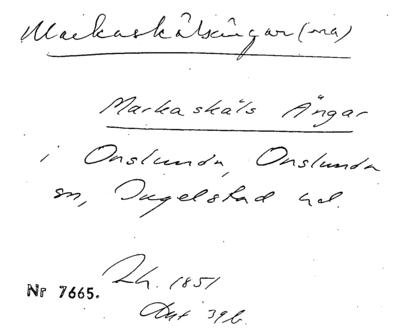 Markaskälsängar(na)
Markaskäls Ängar
i Onslunda, Onslunda
sn, Ingelstad hd.
Lh. 1851
Nr 7665.
Akt 39b.